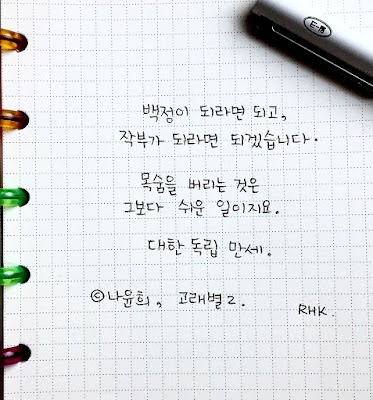 백정이 되라면 되고,
작부가 되라면 되겠습니다.
목숨을 버리는 것은
그보다 쉬운 일이지요.
대한 독립 만세.
©나윤희, 고래별 2.
RHK.